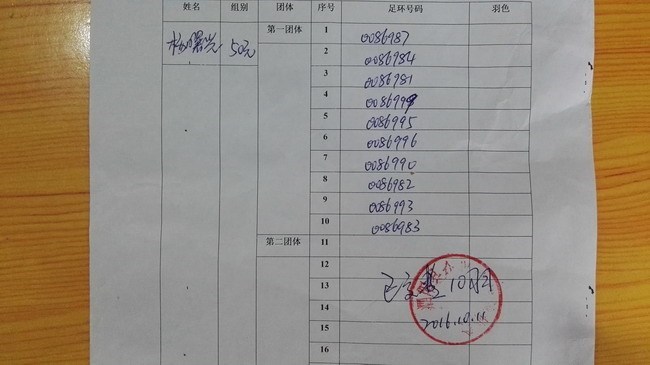 姓名 组别 团体 序号 足环号码 羽色
杨曙光 50元 第一团体 1 0086987
2 0086984
3 0086981
4 0086999
5 0086995
6 0086996
7 0086990
8 0086982
9 0086993
10 0086983
第二团体 11
12
13 10月
14
2016.10.11
15
16